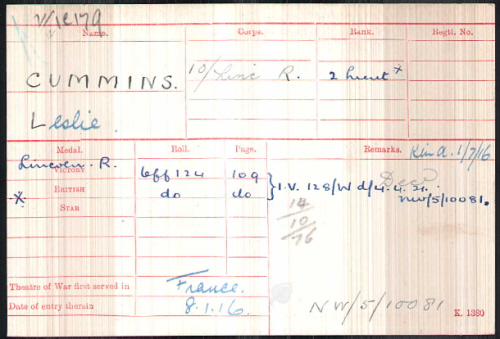 V/1C179
Name. Corps. Rank. Regtl. No.
CUMMINS. 10/Linc R. 2 Lieut x
Leslie.
Medal. Roll. Page. Remarks. Kin A. 1/7/16
Lincoln. R.
VICTORY Off 124 109 } I.V. 128/W d/4.4.21. Decd
x BRITISH do do NW/5/10081.
STAR 14
10
16
Theatre of War first served in France.
Date of entry therein 8.1.16. NW/5/10081
K. 1380